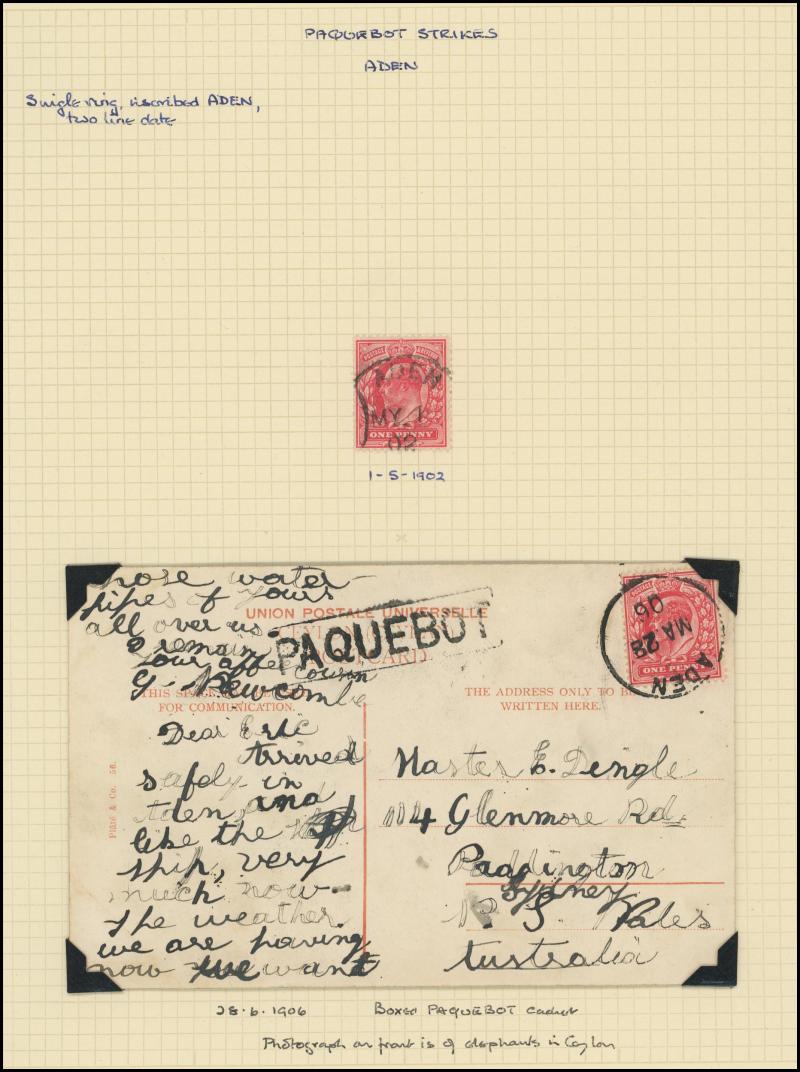 PAQUEBOT STRIKES
ADEN
Single ring, inscribed ADEN,
two line date
POSTAGE REVENUE
ADEN
MY 1
02
ONE PENNY
1-5-1902
those water
pipes of yours
all over us.
I remain
Your affec
cousin
G. Newcombe
UNION POSTALE UNIVERSELLE
PAQUEBOT
POSTCARD
06
MA 28
ADEN
ONE PENNY
THIS SPACE
FOR COMMUNICATION.
THE ADDRESS ONLY TO BE
WRITTEN HERE.
Plâté & Co. 56.
Dear Eric
Arrived
safely in
Aden, and
like the
ship, very
much now
the weather
we are having
now we want
Master E. Dingle
114 Glenmore Rd.
Paddington
Sydney
N. S. Wales
Australia
28.6.1906
Boxed PAQUEBOT cachet
Photograph on front is of elephants in Ceylon